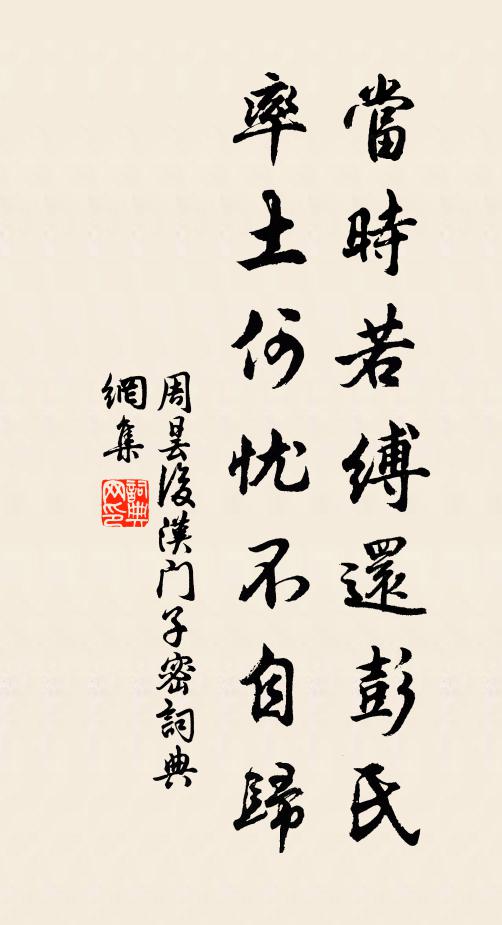 當時若縛還彭氏
率土何忧不自歸
周曇後漢门子密詞典
網集
詞典
网印